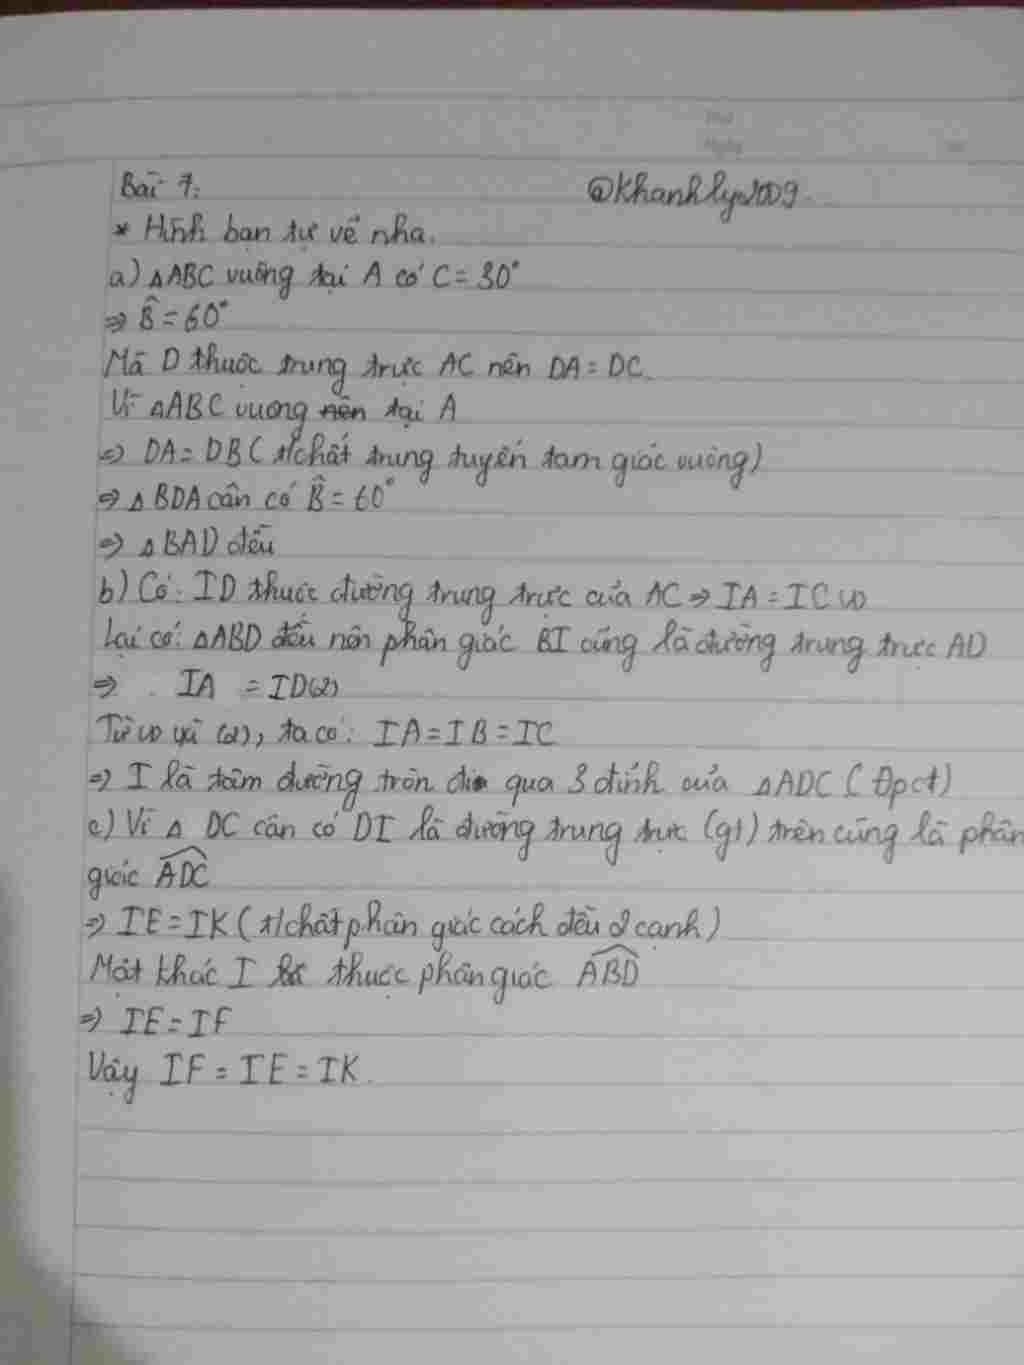 Bài 7:
@Khanhly2009.
* Hình bạn tự vẽ nha.
a) △ABC vuông tại A có C = 30°
⇒ B̂ = 60°
Mà D thuộc trung trực AC nên DA = DC.
Vì △ABC vuong tại A
⇒ DA = DB ( t/chất trung tuyến tam giác vuông)
⇒ △BDA cân có B̂ = 60°
⇒ △BAD đều
b) Có: ID thuộc đường trung trực của AC ⇒ IA = IC (1)
Lại có: △ABD đều nên phân giác BI cũng là đường trung trực AD
⇒ IA = ID (2)
Từ (1) và (2), ta có: IA = IB = IC
⇒ I là tâm đường tròn đi qua 3 đỉnh của △ADC ( Đpct)
c) Vì △ DC cân có DI là đường trung trực (gt) trên cũng là phân
giác ADC
⇒ IE = IK ( t/chất phân giác cách đều 2 cạnh)
Mặt khác I thuộc phân giác ABD
⇒ IE = IF
Vậy IF = IE = IK.